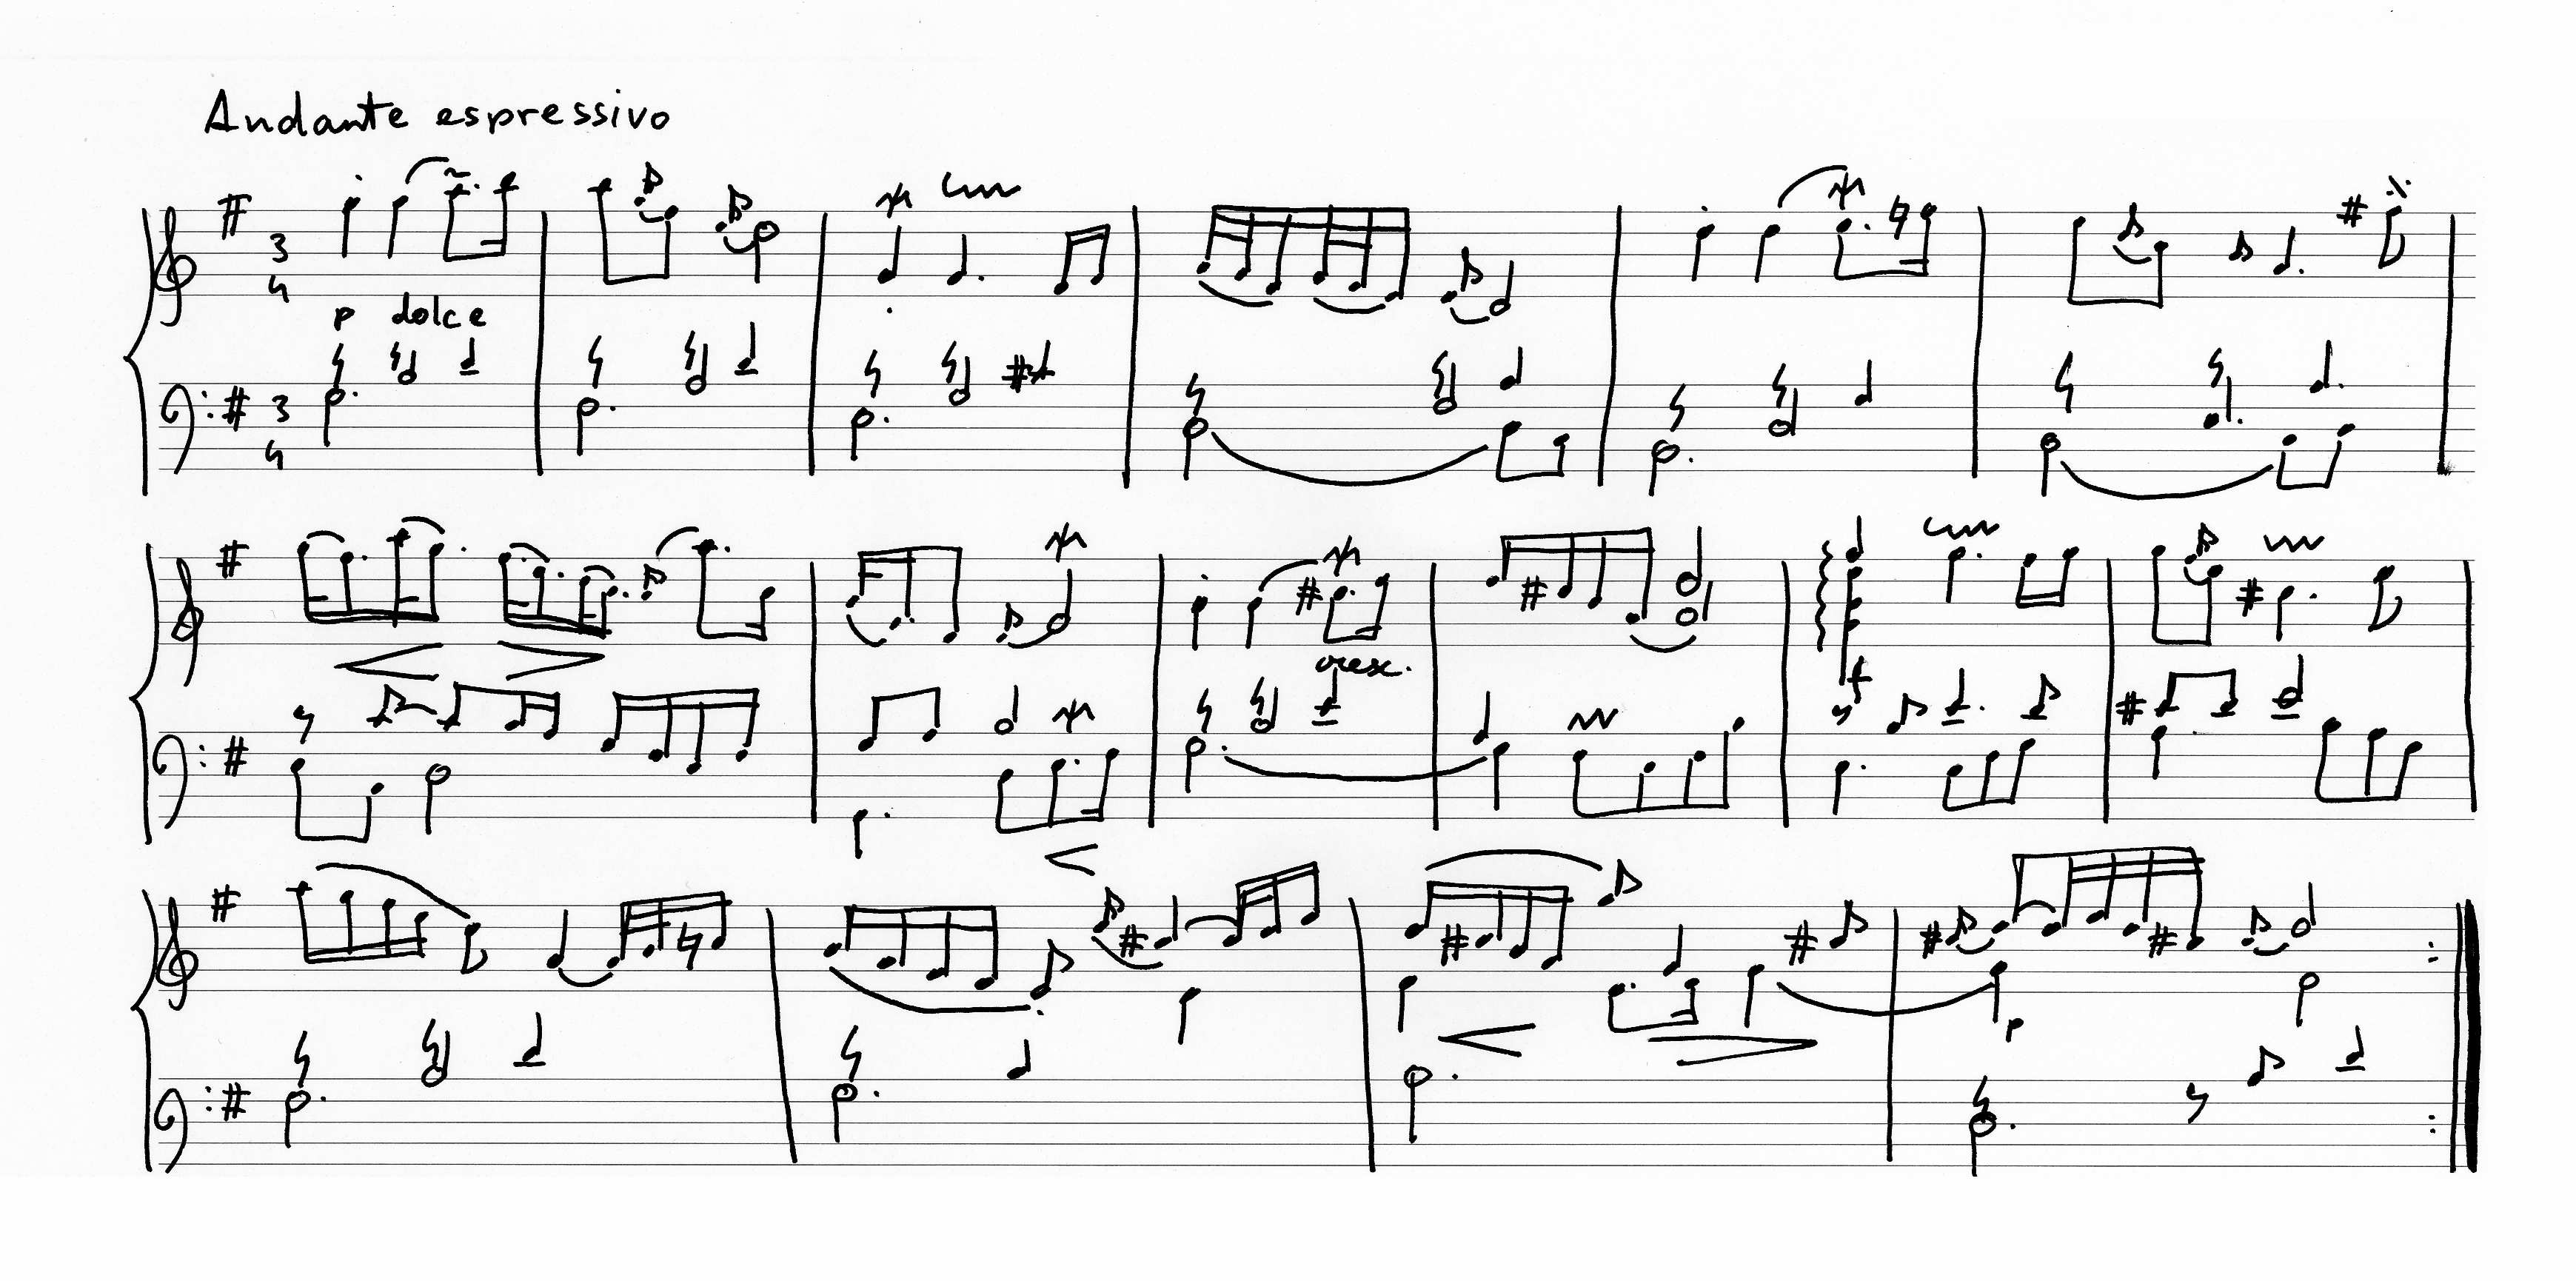 Andante espressivo
3
4
p dolce
3
4
cresc.
f
p